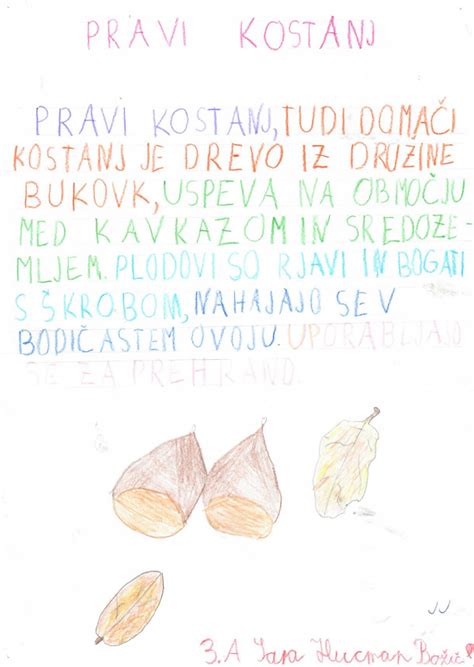 PRAVI KOSTANJ
PRAVI KOSTANJ, TUDI DOMAČI
KOSTANJ JE DREVO IZ DRUZINE
BUKOVK, USPEVA NA OBMOČJU
MED KAVKAZOM IN SREDOZE-
MLJEM. PLODOVI SO RJAVI IN BOGATI
S ŠKROBOM, NAHAJAJO SE V
BODIČASTEM OVOJU. UPORABLJAJO
SE ZA PREHRANO.
JJ
3.A Hucman Božič